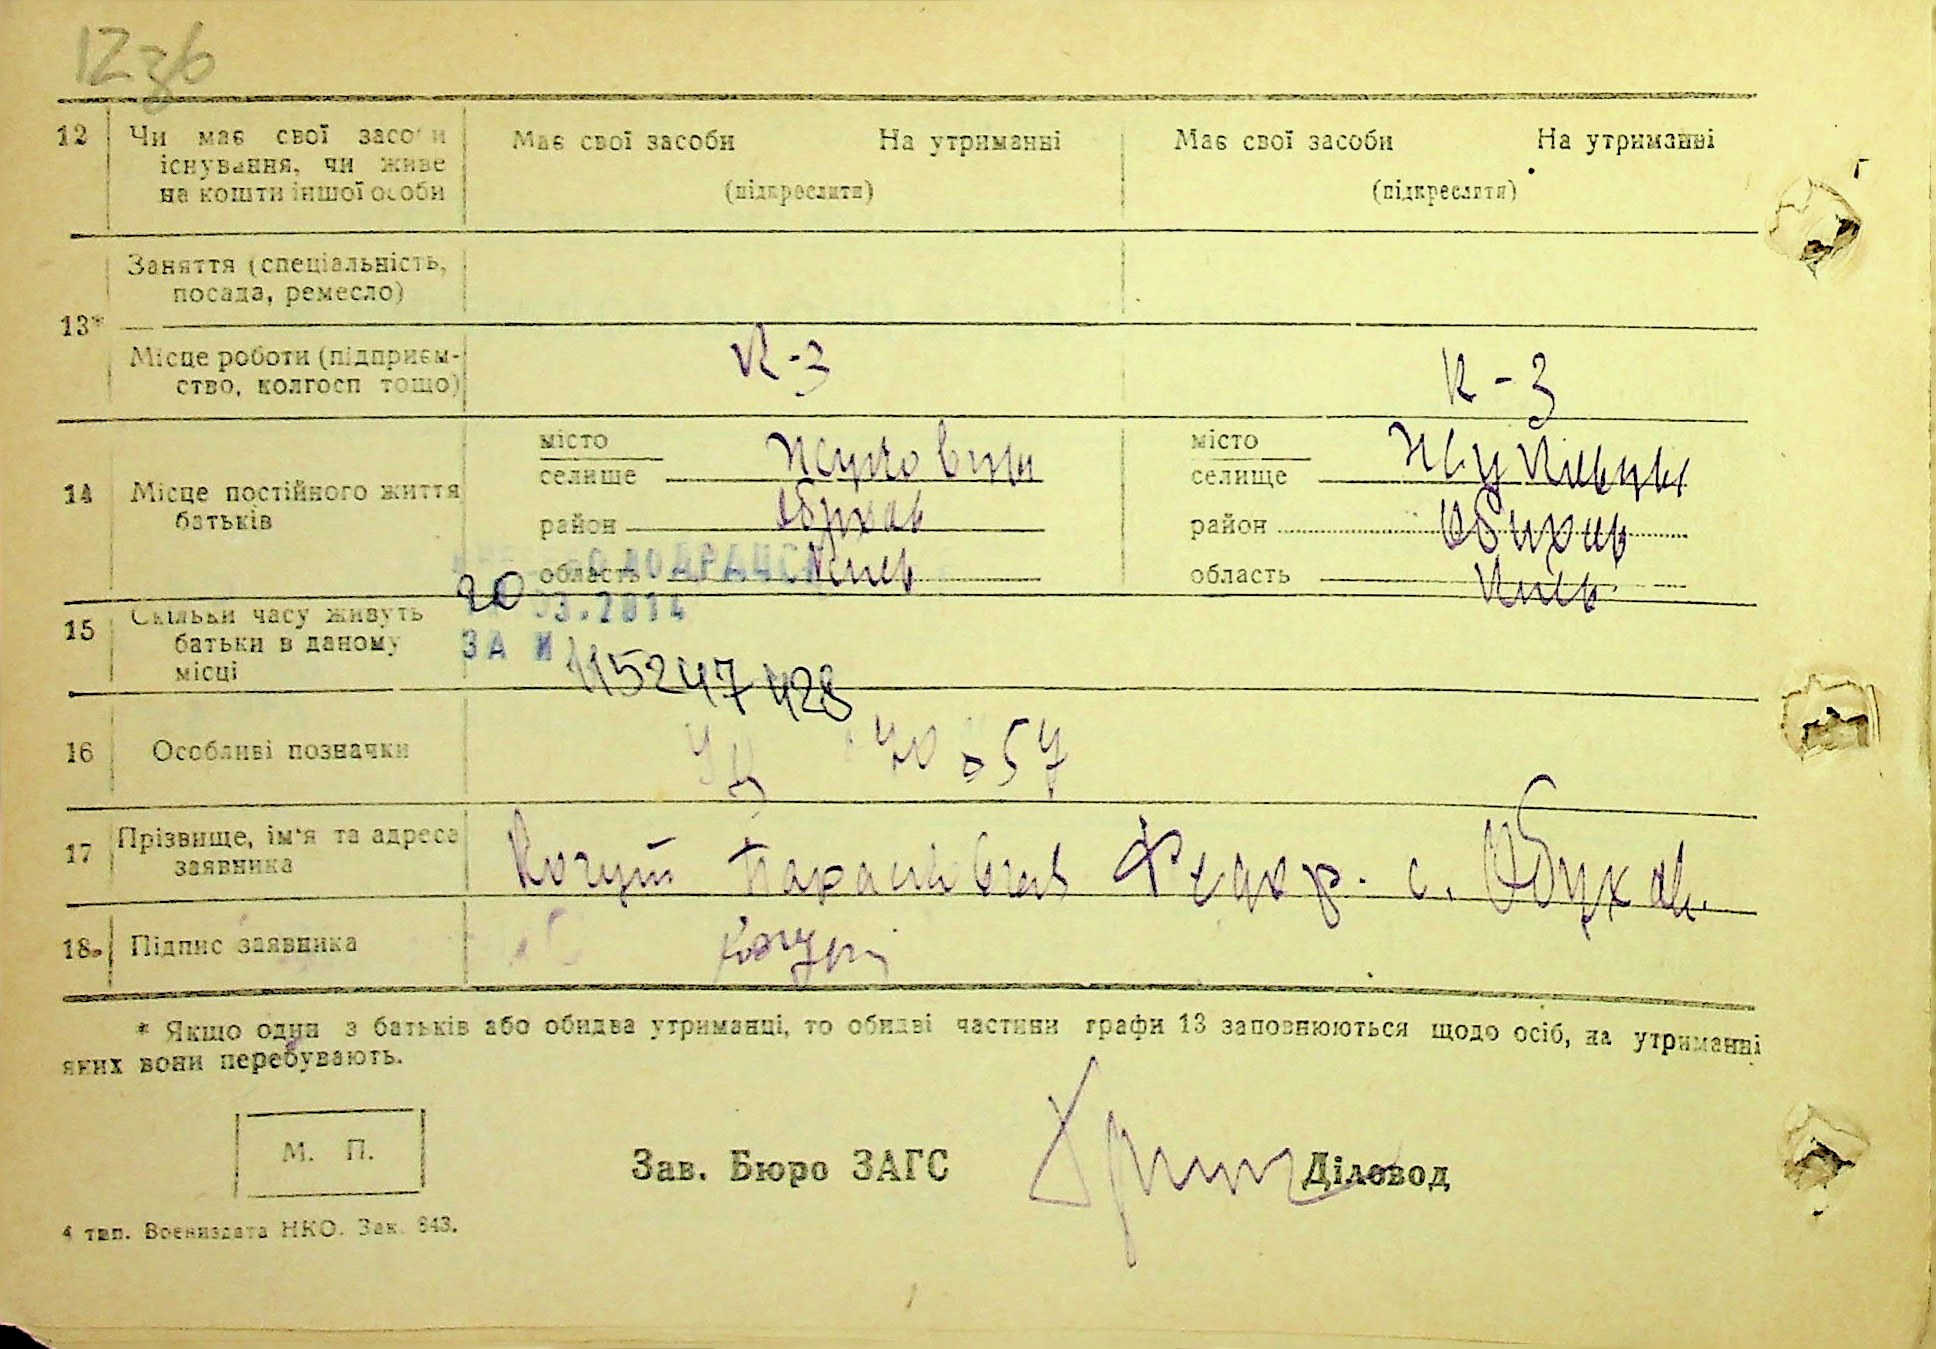 12зб
12 Чи має свої засоби Має свої засоби На утриманні Має свої засоби На утриманні
існування, чи живе
на кошти іншої особи (підкреслити) (підкреслити)
Заняття (спеціальність,
посада, ремесло)
13*
Місце роботи (підприєм- К-з К-з
ство, колгосп тощо)
місто місто
селище селище
14 Місце постійного життя
батьків район Обухів район Обухів
область Київ область Київ
20 03.2014
15 Скільки часу живуть
батьки в даному ЗА №
місці 115247428
16 Особливі позначки
17 Прізвище, ім'я та адреса
заявника Федор. с. Обухів.
18. Підпис заявника
* Якщо один з батьків або обидва утриманці, то обидві частини графи 13 заповнюються щодо осіб, на утриманні
яких вони перебувають.
М. П.
Зав. Бюро ЗАГС Діловод
4 тип. Воениздата НКО. Зак. 843.